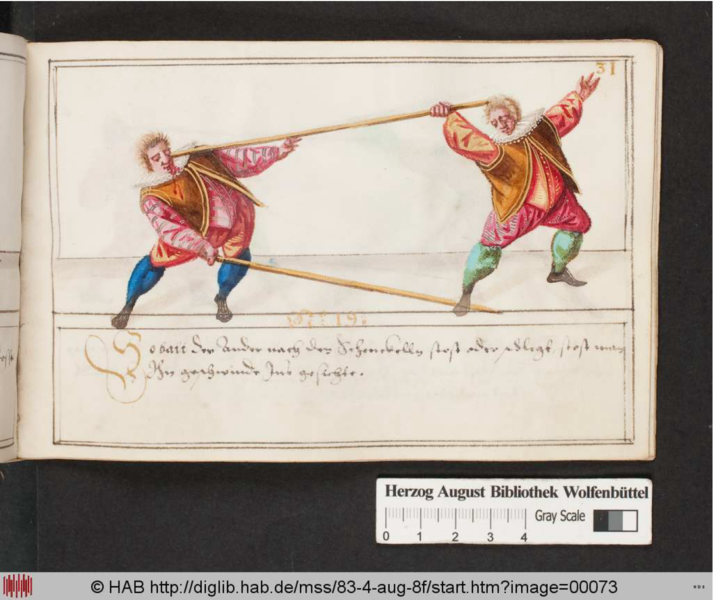 31
19.
So balt der Ander nach den Schenckelln stost oder schlegt, stost man
Ihn geschwinde Ins gesichte.
Herzog August Bibliothek Wolfenbüttel
Gray Scale
0 1 2 3 4
© HAB http://diglib.hab.de/mss/83-4-aug-8f/start.htm?image=00073